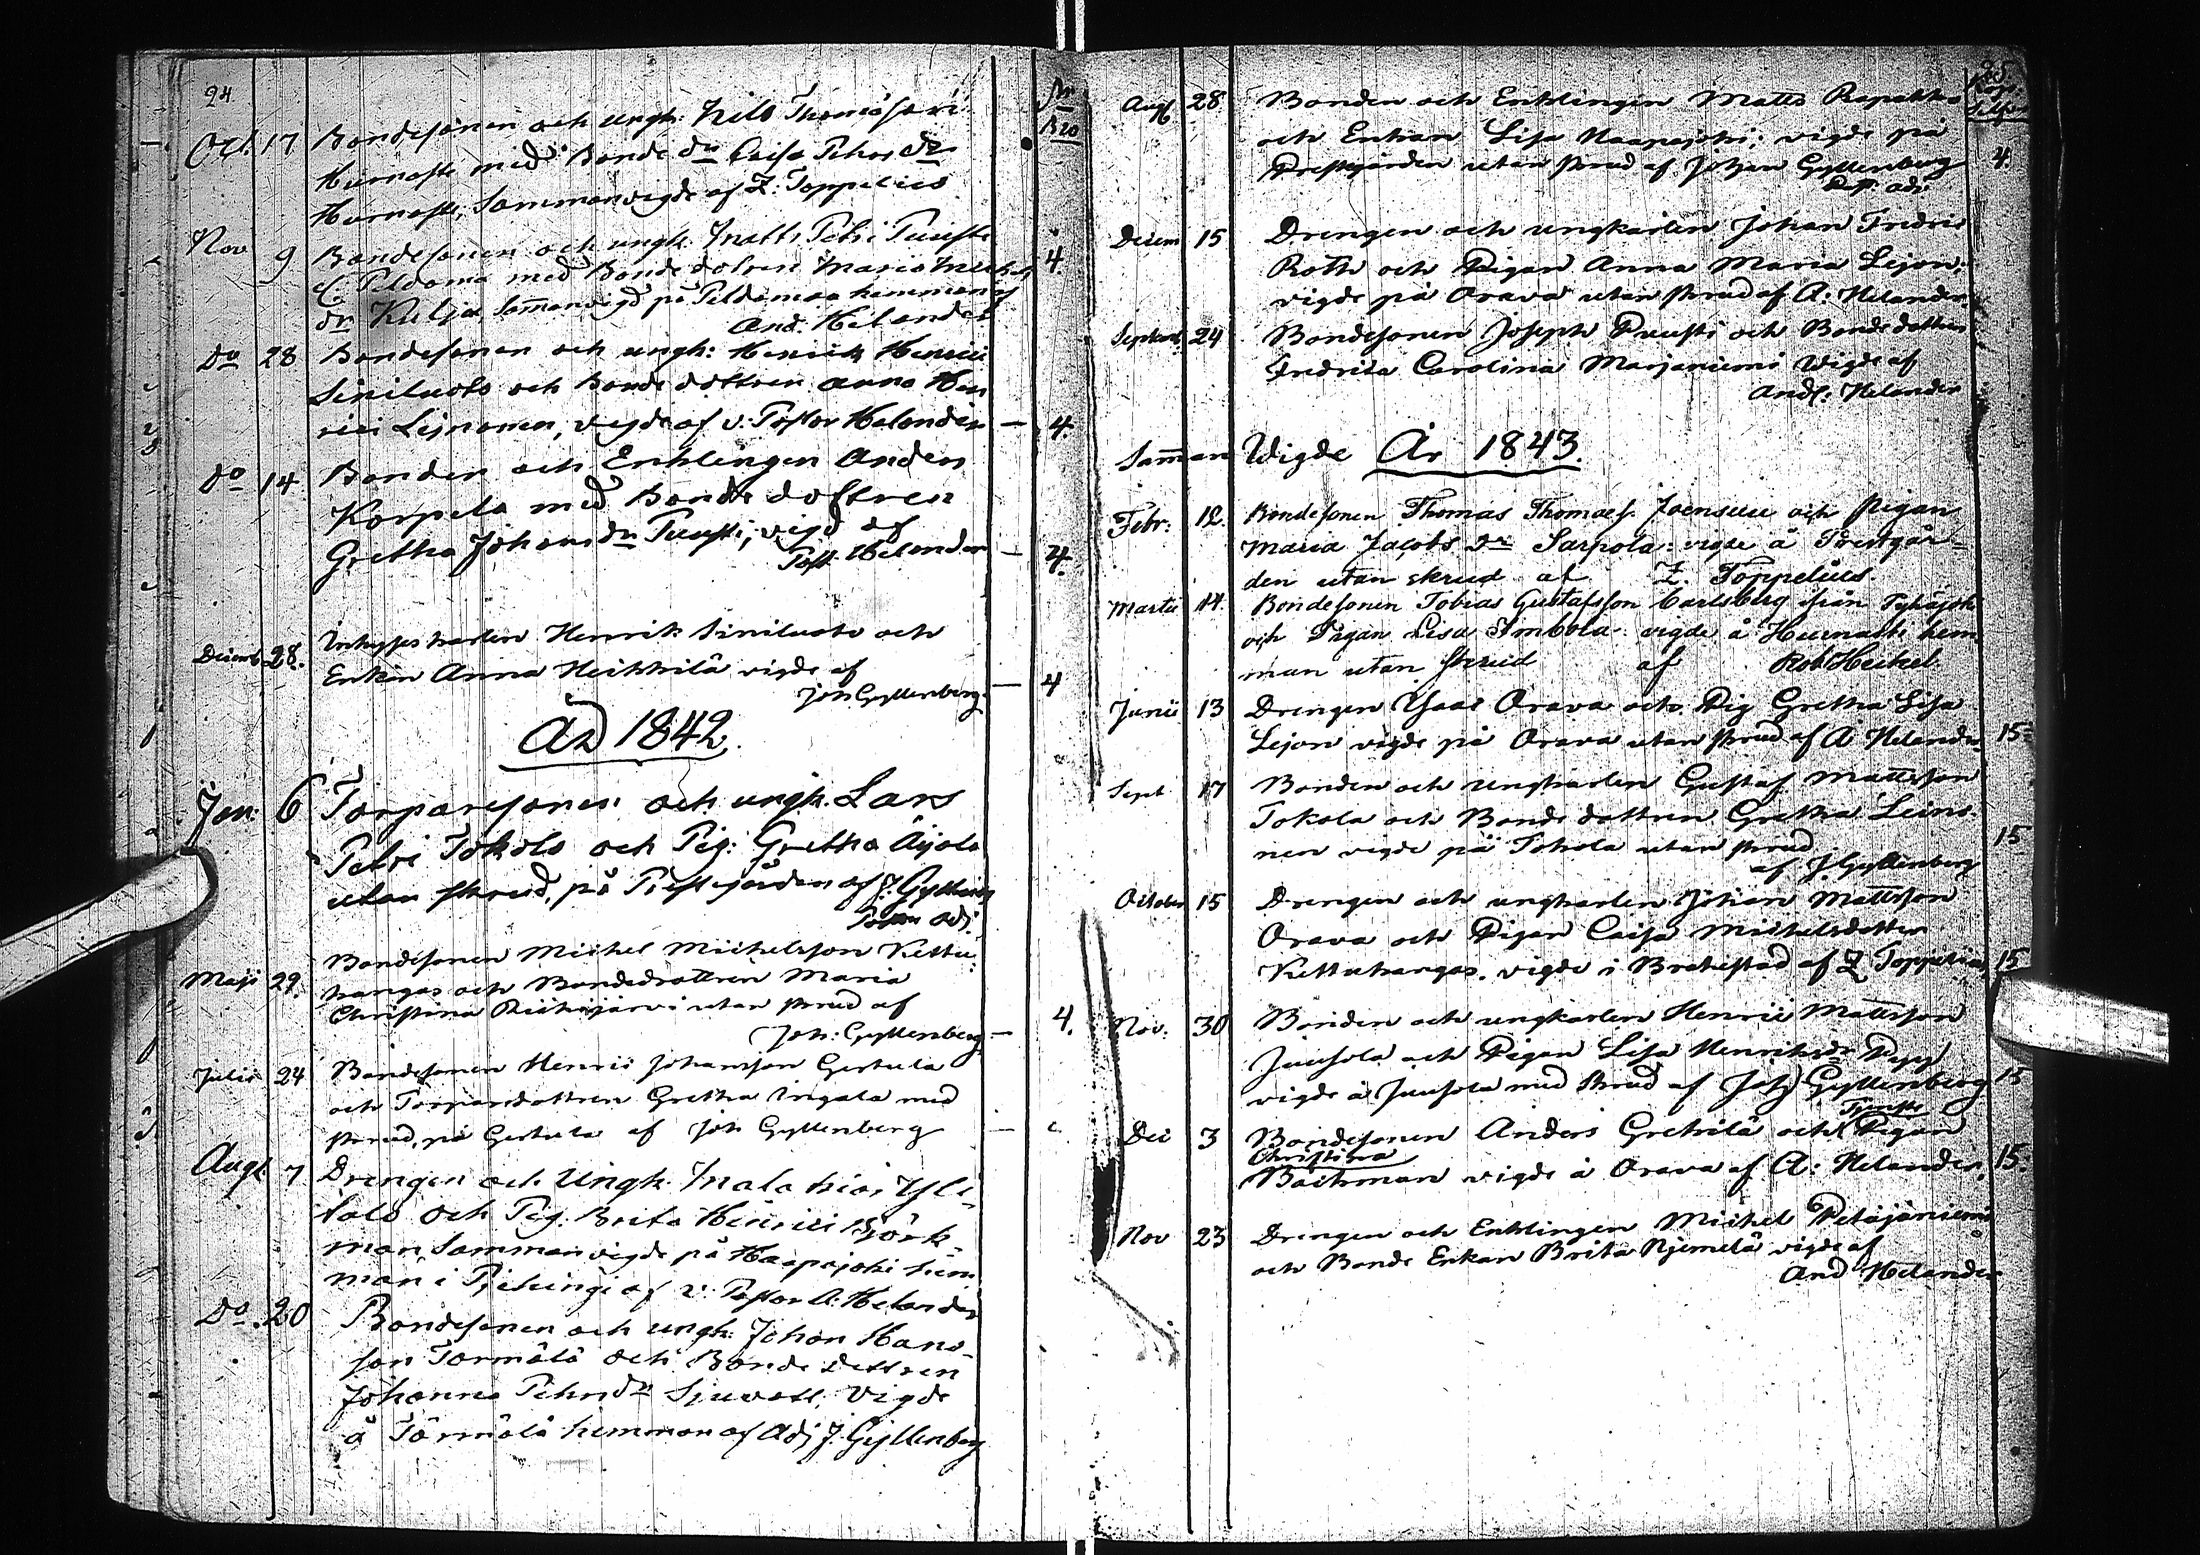 24
Oct. 17 Bondesonen och ungk: Nils Thomæson
Hurnasti med Bonde dr Caisa Pehrs dr
Hurnasti, Sammanvigde af Z: Toppelius
Nov 9 Bondesonen och ungk: Matts Petri Puusti
Pildama med Bonde dotren Maria Michels
dr Kulju, Sam̄anvigd på Pildamaa hemman af
And. Helander
4
Do 28 Bondesonen och ungk: Henrik Henrici
Siniluoto och Bonde dottren Anna Hen
rici Lejnonen, vigde af v. Pastor Helander — 4.
Do 14 Bonden och Enklingen Anders
Korpela med Bonde dottren
Gretha Johans dr Puusti, vigd af
Past. Helander — 4.
Decemb 28. Inhyses karlen Henrik Siniluoto och
Enkan Anna Heikkilä vigde af
Joh Gyllenberg — 4
Åd 1842.
Jan: 6 Torparesonen och ungk. Lars
Petri Tokola och Pig: Gretha Äijälä
utan skrud, på Prestgården af J. Gyllenberg
Past. adj.
Maji 29. Bondesonen Michel Michelsson Kettu
kangas och Bondedottren Maria
Christina Reikojärvi utan skrud af
Joh: Gyllenberg — 4.
Julii 24 Bondesonen Henric Johansson Gertula
och Torpardottren Gretha Ingala med
skrud, på Gertula af Joh Gyllenberg
Augt 7 Drengen och Ungk. Malachias Yli
talo och Pig. Brita Henrici Björk-
man Sammanvigde på Haapajoki hem
man i Piehingi af v. Pastor A. Helander
Do. 20 Bondesonen och ungk: Johan Hans-
son Törmälä och Bonde dottren
Johanna Pehrsdr Sjuvatt, Vigde
å Törmälä hemman af Adj J. Gyllenberg
25
Aug 28 Bonden och Enklingen Matts Rapakko
och Enkan Lisa Haapajoki; vigde på
Prestgården utan skrud af Johan Gyllenberg
Past. adj. 4.
Decem 15 Drengen och ungkarlen Johan Fredric
Roth och Pigan Anna Maria Lejon;
vigde på Orava utan skrud af A: Helander
Septemb. 24 Bondesonen Joseph Puusti och Bonde dottren
Fredrica Carolina Marjaniemi Vigde af
And: Helander
Sam̄an Wigde År 1843.
Febr: 12. Bondesonen Thomas Thomaes. Joensuu och Pigan
Maria Jacobs Dr Sarpola: vigde å Prestgår-
den utan skrud af Z. Toppelius.
Martii 14. Bondesonen Tobias Gustafsson Carlsberg från Pyhäjoki
och Pigan Lisa Simbola: vigde å Hurnasti hem
man utan skrud af Rob Heikel
Junii 13 Drengen Isaac Orava och Pig Gretha Lisa
Lejon vigde på Orava utan skrud af A Helander 15
Sept 17 Bonden och ungkarlen Gustaf Mattsson
Tokola och Bonde dottren Gretha Leino-
nen vigde på Tokola utan skrud
af J. Gyllenberg 15
October 15 Drengen och ungkarlen Johan Mattsson
Orava och Pigan Caisa Michelsdotter
Kettukangas, vigde i Brahestad af Z Toppelius 15
Nov: 30 Bonden och ungkarlen Henric Mattsson
Juusola och Pigan Lisa Henriksdr Pigg
vigde å Juusola med skrud af Joh Gyllenberg 15
Dec 3 Bondesonen Anders Grekilä och Pigan
Christina
Backman vigde å Orava af A: Helander. 15.
Nov 23 Drengen och Enklingen Michel Petäjäniemi
och Bonde Enkan Brita Njemelä vigde af
And Helander